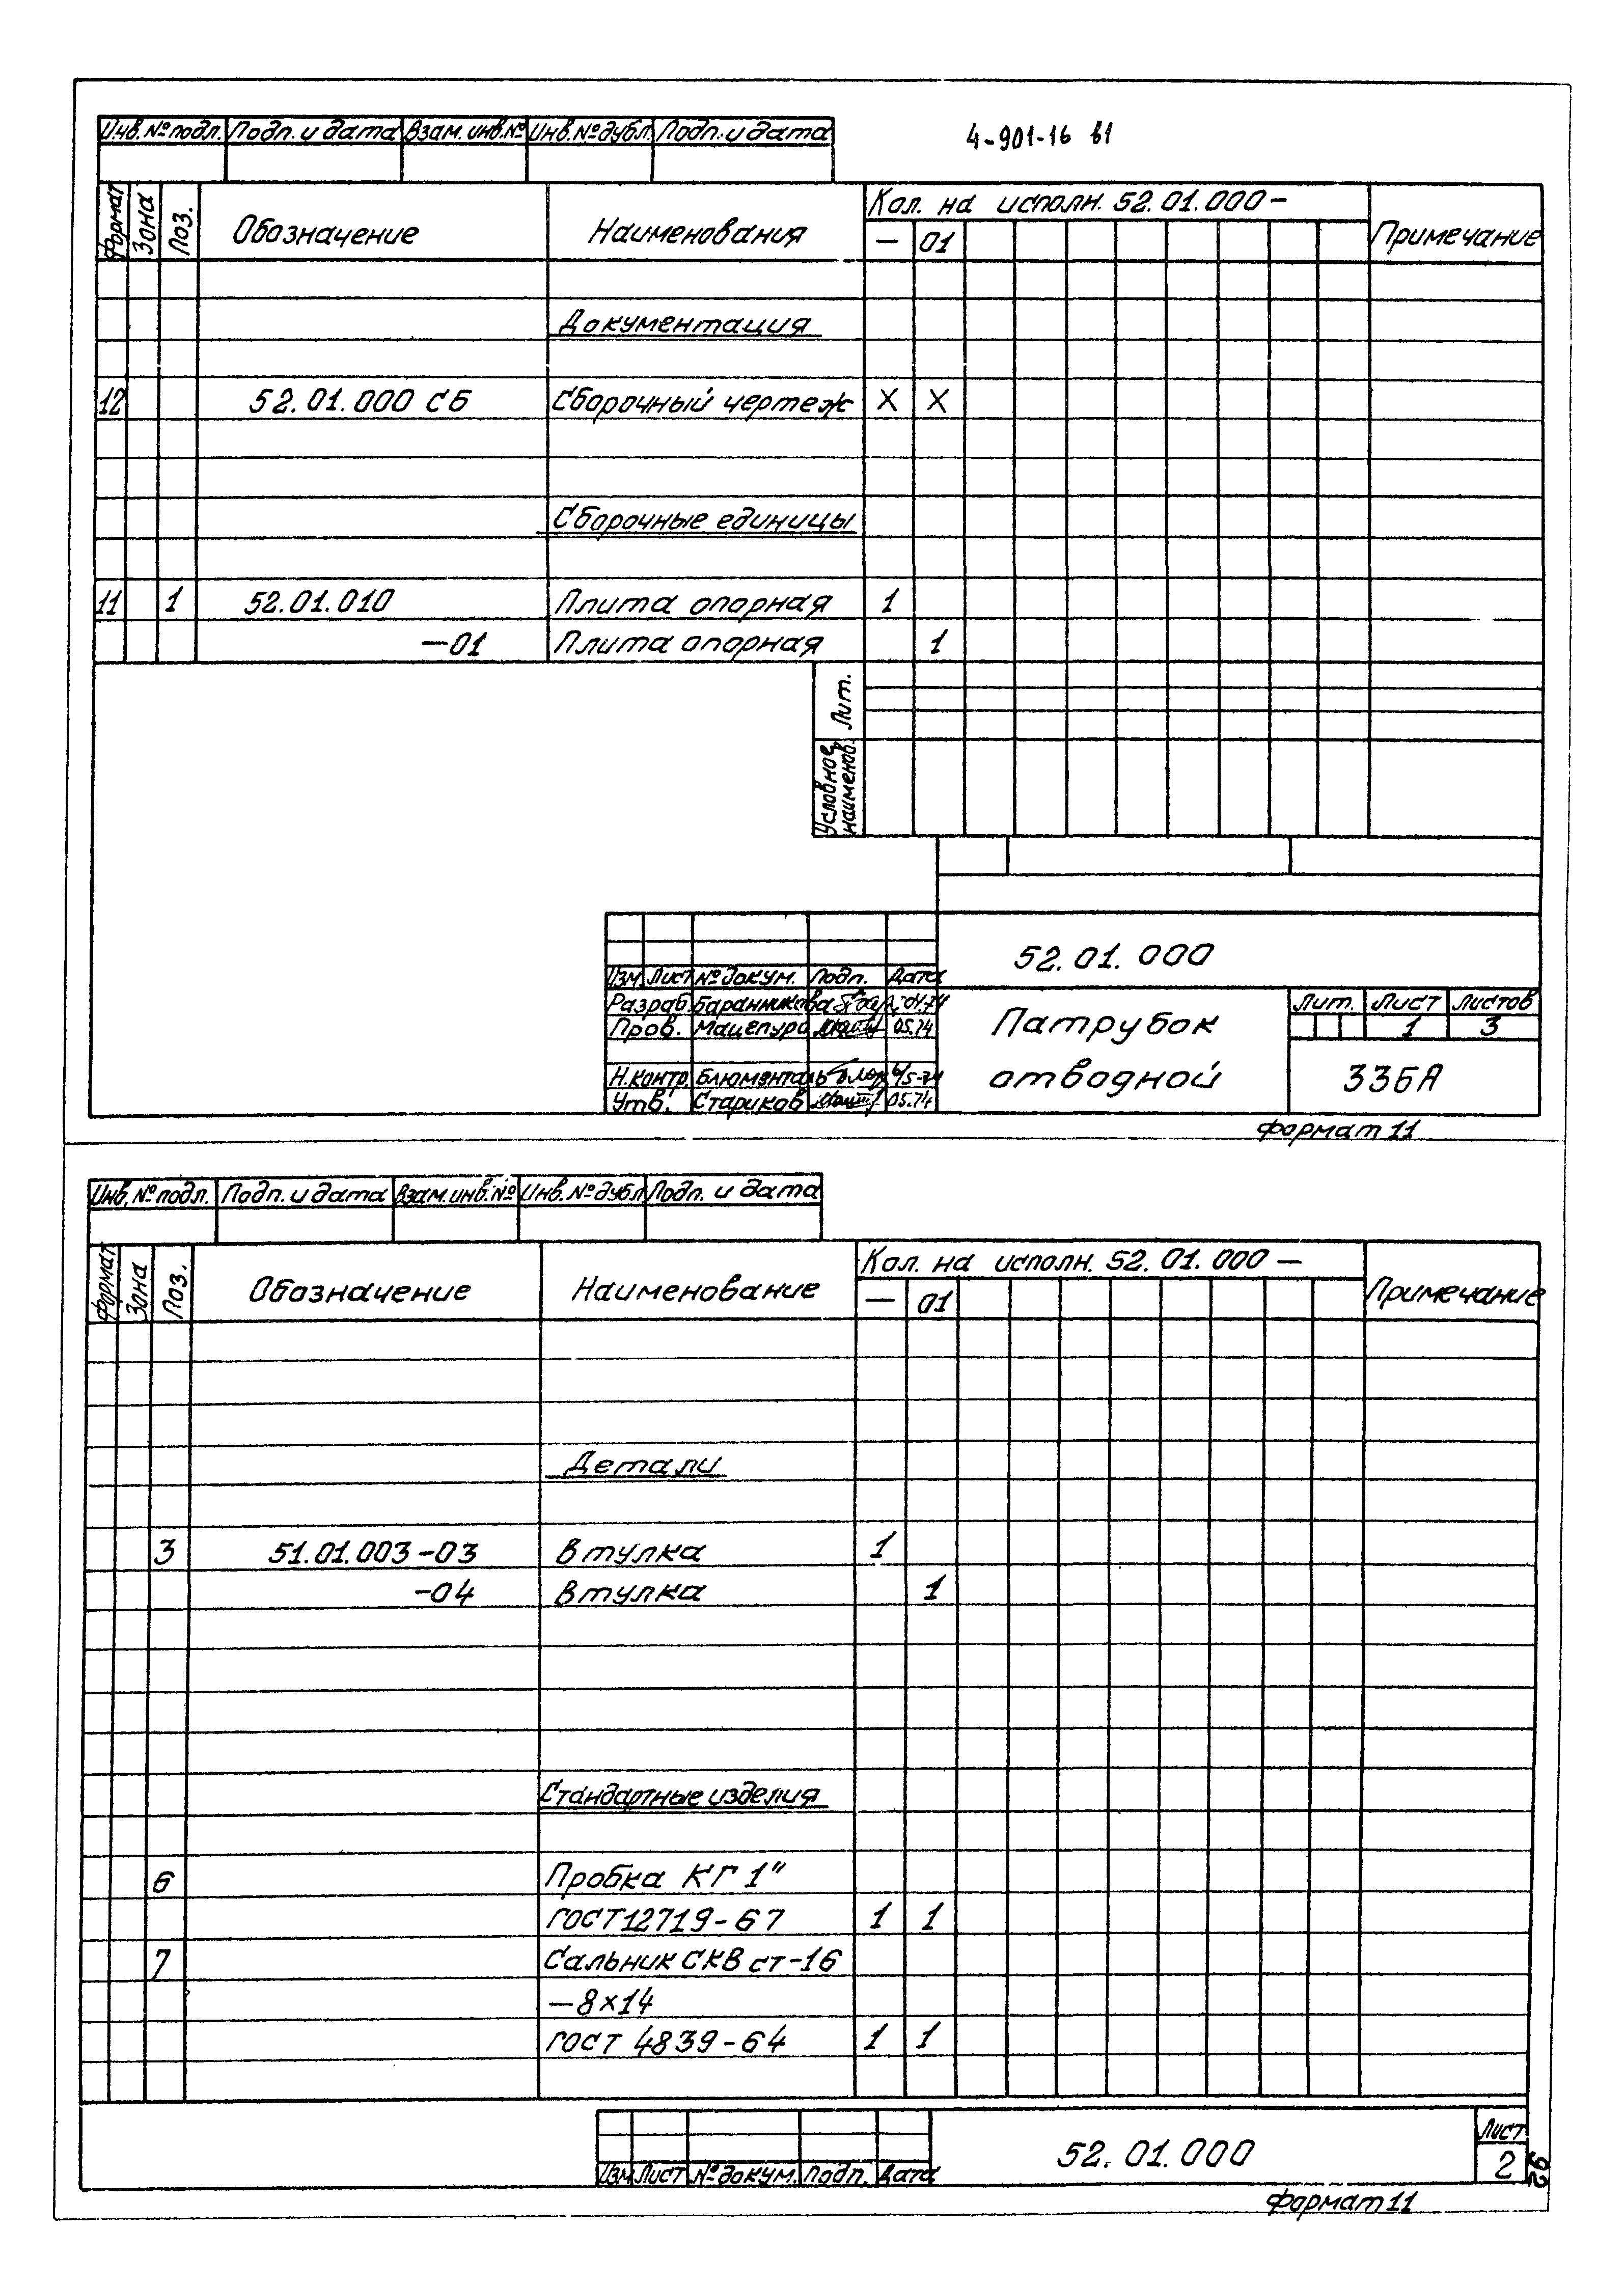 4-901-16 в1
Инв. № подл. Подп. и дата Взам. инв. № Инв. № дубл. Подп. и дата
Формат Зона Поз. Обозначение Наименования Кол. на исполн. 52.01.000 – Примечание
— 01
Документация
12 52.01.000 СБ Сборочный чертеж X X
Сборочные единицы
11 1 52.01.010 Плита опорная 1
—01 Плита опорная 1
Лит.
Условное наименов.
52.01.000
Изм Лист № докум. Подп. Дата
Разраб. Баранникова 04.74
Пров. Мацепура 05.74
Н.контр. Блюменталь
Утв. Стариков 05.74
Патрубок
отводной
Лит. Лист Листов
1 3
336А
Формат 11
Инв. № подл. Подп. и дата Взам. инв. № Инв. № дубл. Подп. и дата
Формат Зона Поз. Обозначение Наименование Кол. на исполн. 52.01.000 — Примечание
— 01
Детали
3 51.01.003-03 Втулка 1
-04 Втулка 1
Стандартные изделия
6 Пробка КГ 1"
ГОСТ 12719-67 1 1
7 Сальник СКВ ст-16
—8×14
ГОСТ 4839-64 1 1
Изм Лист № докум. Подп. Дата
52.01.000
Лист
2
92
Формат 11